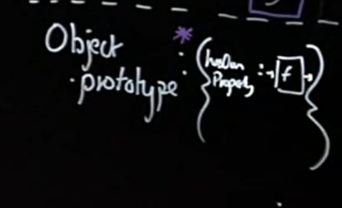 Object *
.prototype : { hasOwn
Property : → [f] → }